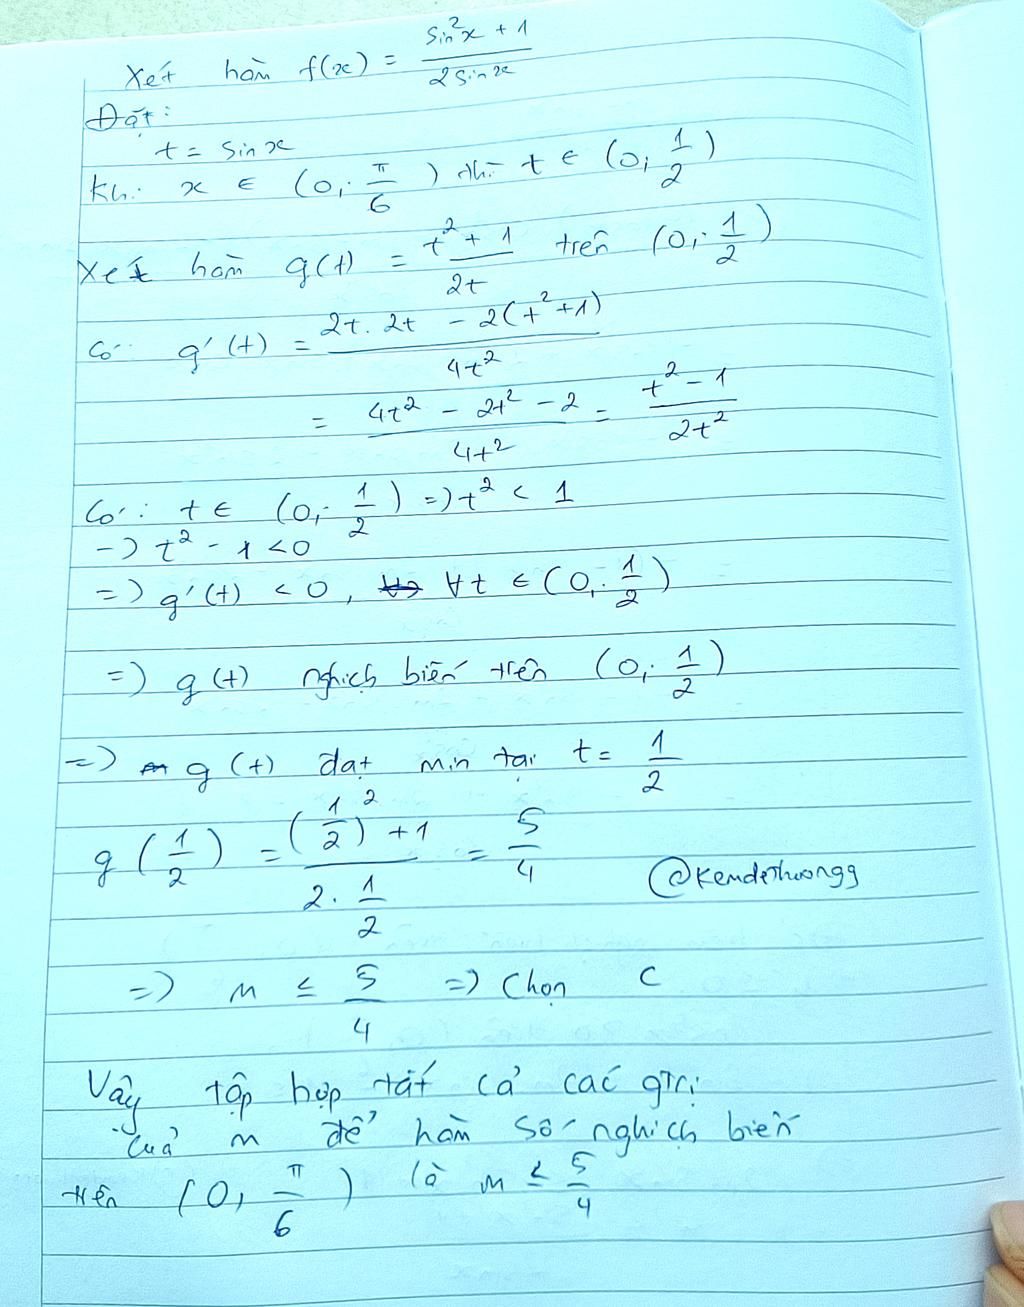 Xét hàm f(x) = (sin²x + 1)/(2 sin x)
Đặt:
t = sin x
Khi x ∈ (0; π/6) thì t ∈ (0; 1/2)
Xét hàm g(t) = (t² + 1)/(2t) trên (0; 1/2)
Có: g'(t) = (2t. 2t - 2(t²+1))/(4t²)
= (4t² - 2t² - 2)/(4t²) = (t² - 1)/(2t²)
Có: t ∈ (0; 1/2) => t² < 1
-> t² - 1 < 0
=> g'(t) < 0, ∀t ∈ (0; 1/2)
=> g(t) nghịch biến trên (0; 1/2)
=> g(t) đạt min tại t = 1/2
g(1/2) = ((1/2)² + 1)/(2. 1/2) = 5/4
@kemdethuongg
=> m ≤ 5/4 => Chọn C
Vậy tập hợp tất cả các gtrị
của m để hàm số nghịch biến
trên (0, π/6) là m ≤ 5/4